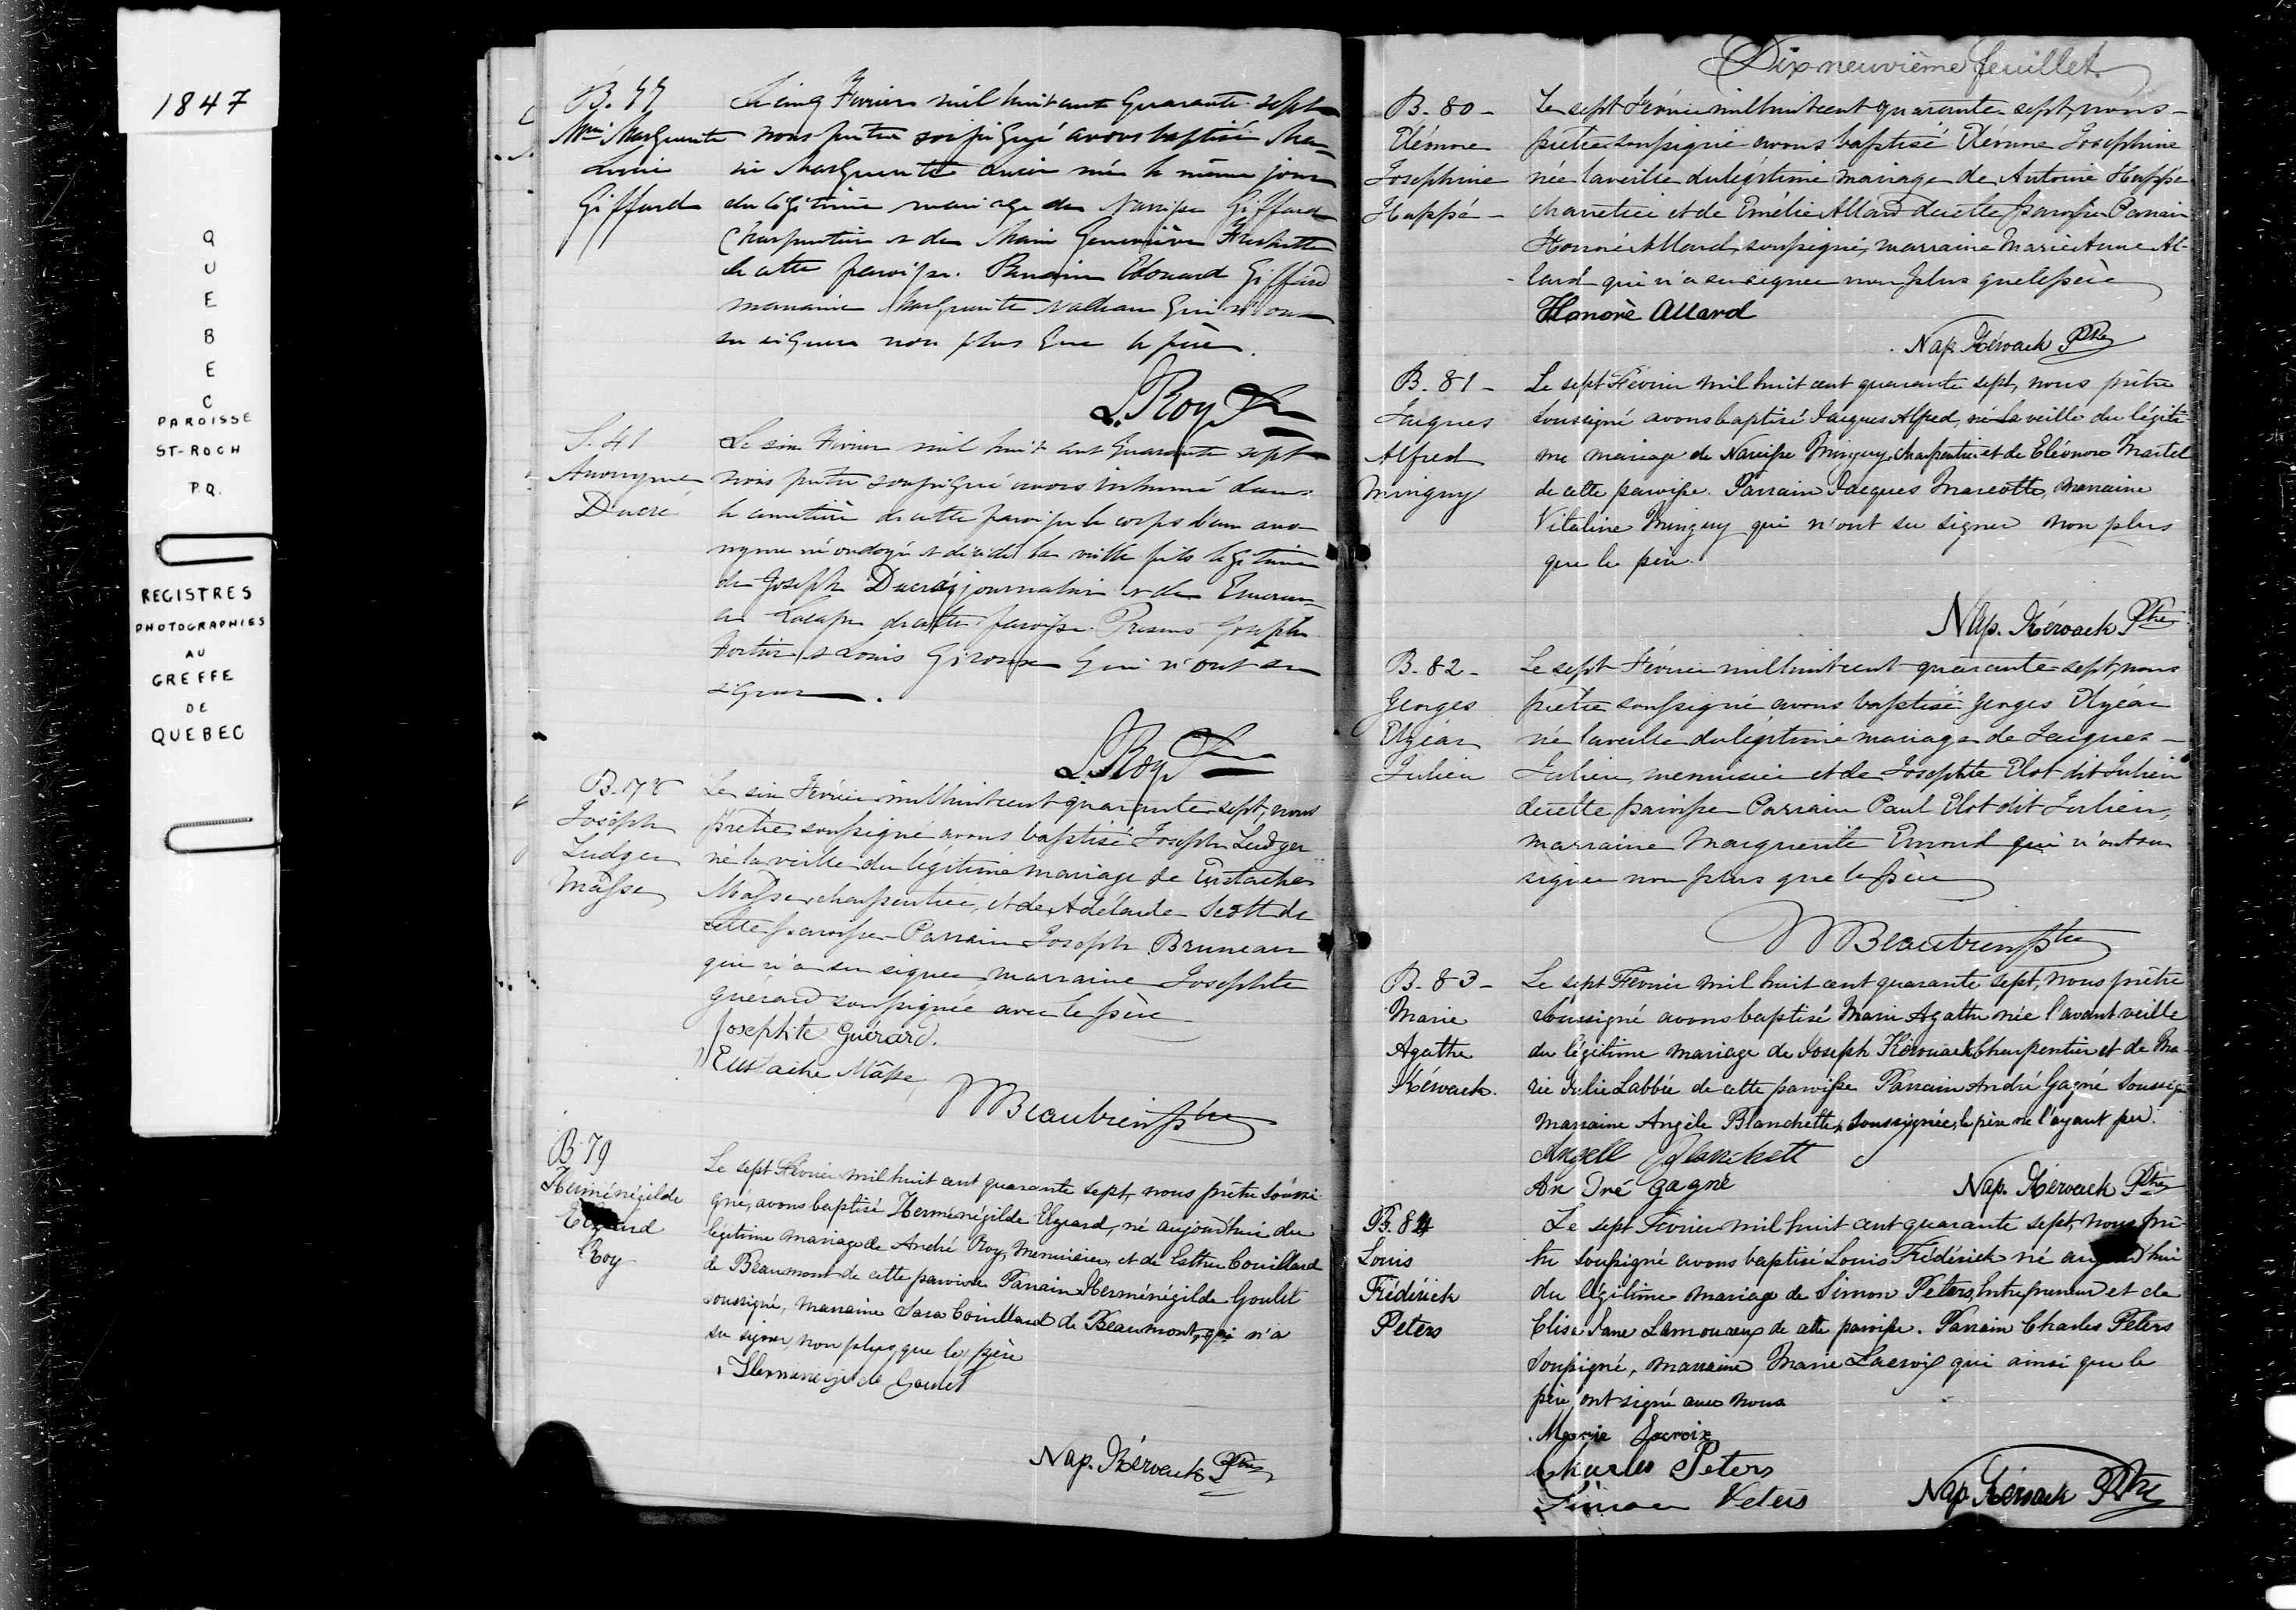 1847
QUEBEC
PAROISSE
ST-ROCH
P.Q.
REGISTRES
PHOTOGRAPHIES
AU
GREFFE
DE
QUEBEC
B. 77
Mie Marguerite
Lucie
Giffard
Le cinq Fevrier mil huit cent quarante-sept
nous prêtre soussigné avons baptisé Ma-
rie Marguerite Lucie née le même jour
du légitime mariage de Narcisse Giffard
Charpentier et de Marie Geneviève Frechette
de cette paroisse. Parrain Edouard Giffard
marraine Marguerite Nadeau qui n'ont
su signer non plus que le père.
L. Roy Ptre
S. 41
Anonyme
Ducré
Le six Fevrier mil huit cent quarante sept
nous prêtre soussigné avons inhumé dans
le cimetière de cette paroisse le corps d'un ano-
nyme né ondoyé et décédé la veille fils légitime
de Joseph Ducré journalier et de
de cette paroisse. Présens Joseph
Fortier et Louis Giroux qui n'ont su
signer.
L. Roy Ptre
B. 78
Joseph
Ludger
Masse
Le six Février mil huit cent quarante sept, nous
prêtre soussigné avons baptisé Joseph Ludger
né la veille du légitime mariage de Eustache
Masse, charpentier, et de Adélaide Scott de
cette paroisse - Parrain Joseph Bruneau
qui n'a su signer, marraine Josephte
Guérard soussignée avec le père
Josephte Guérard.
Eustache Mâsse
Beaubien Ptre
B 79
Herménégilde
Roy
Le sept Février mil huit cent quarante sept, nous prêtre soussi-
gné, avons baptisé Herménégilde Elzeard, né aujourd'hui du
légitime mariage de André Roy, Menuisier, et de Esther Couillard
de Beaumont de cette paroisse Parrain Herménégilde Goulet
soussigné, marraine Sara Couillard de Beaumont, qui n'a
su signer, non plus que le père
Hermenegilde Goulet
Nap. Kérouack Ptre
Dix-neuvième feuillet
B. 80 -
Eléonore
Josephine
Huppé -
Le sept Février mil huit cent quarante sept, nous -
prêtre soussigné avons baptisé Eléonore Josephine
née la veille du légitime mariage de Antoine Huppé
charretier et de Emélie Allard de cette paroisse Parrain
Honoré Allard, soussigné, marraine Marie Anne Al-
lard qui n'a su signer non plus que le père
Honoré Allard
Nap. Kérouack Ptre
B. 81 -
Jacques
Alfred
Minguy
Le sept Février mil huit cent quarante sept, nous prêtre
soussigné avons baptisé Jacques Alfred, né la veille du légiti-
me mariage de Narcisse Minguy, charpentier et de Eléonore Martel
de cette paroisse. Parrain Jacques Marcotte, marraine
Vitaline Minguy qui n'ont su signer non plus
que le père.
Nap. Kérouack Ptre
B. 82 -
Georges
Elzéar
Julien
Le sept Février mil huit cent quarante-sept, nous
prêtre soussigné avons baptisé Georges Elzéar
né la veille du légitime mariage de Jacques -
Julien, menuisier et de Josephte Elot dit Julien
de cette paroisse Parrain Paul Elot dit Julien,
marraine Marguerite Emond qui n'ont su
signer non plus que le père
Beaubien Ptre
B. 83 -
Marie
Agathe
Kérouack.
Le sept Février mil huit cent quarante sept, nous prêtre
soussigné avons baptisé Marie Agathe née l'avant veille
du légitime mariage de Joseph Kérouack Charpentier et de Ma-
rie Julie Labbée de cette paroisse Parrain André Gagné soussigné
Marraine Angèle Blanchette, soussignée, le père ne l'ayant pu.
Angelle Blanchett
An Dré gagné
Nap. Kérouack Ptre
B. 84
Louis
Frédérick
Peters
Le sept Février mil huit cent quarante sept, nous prê-
tre soussigné avons baptisé Louis Frédérick né aujourd'hui
du légitime mariage de Simon Peters, Entrepreneur et de
Elisa Jane Lamoureux de cette paroisse. Parrain Charles Peters
soussigné, marraine Marie Lacroix qui ainsi que le
père, ont signé avec nous
Marie Lacroix
Charles Peters
Simon Peters
Nap Kérouack Ptre